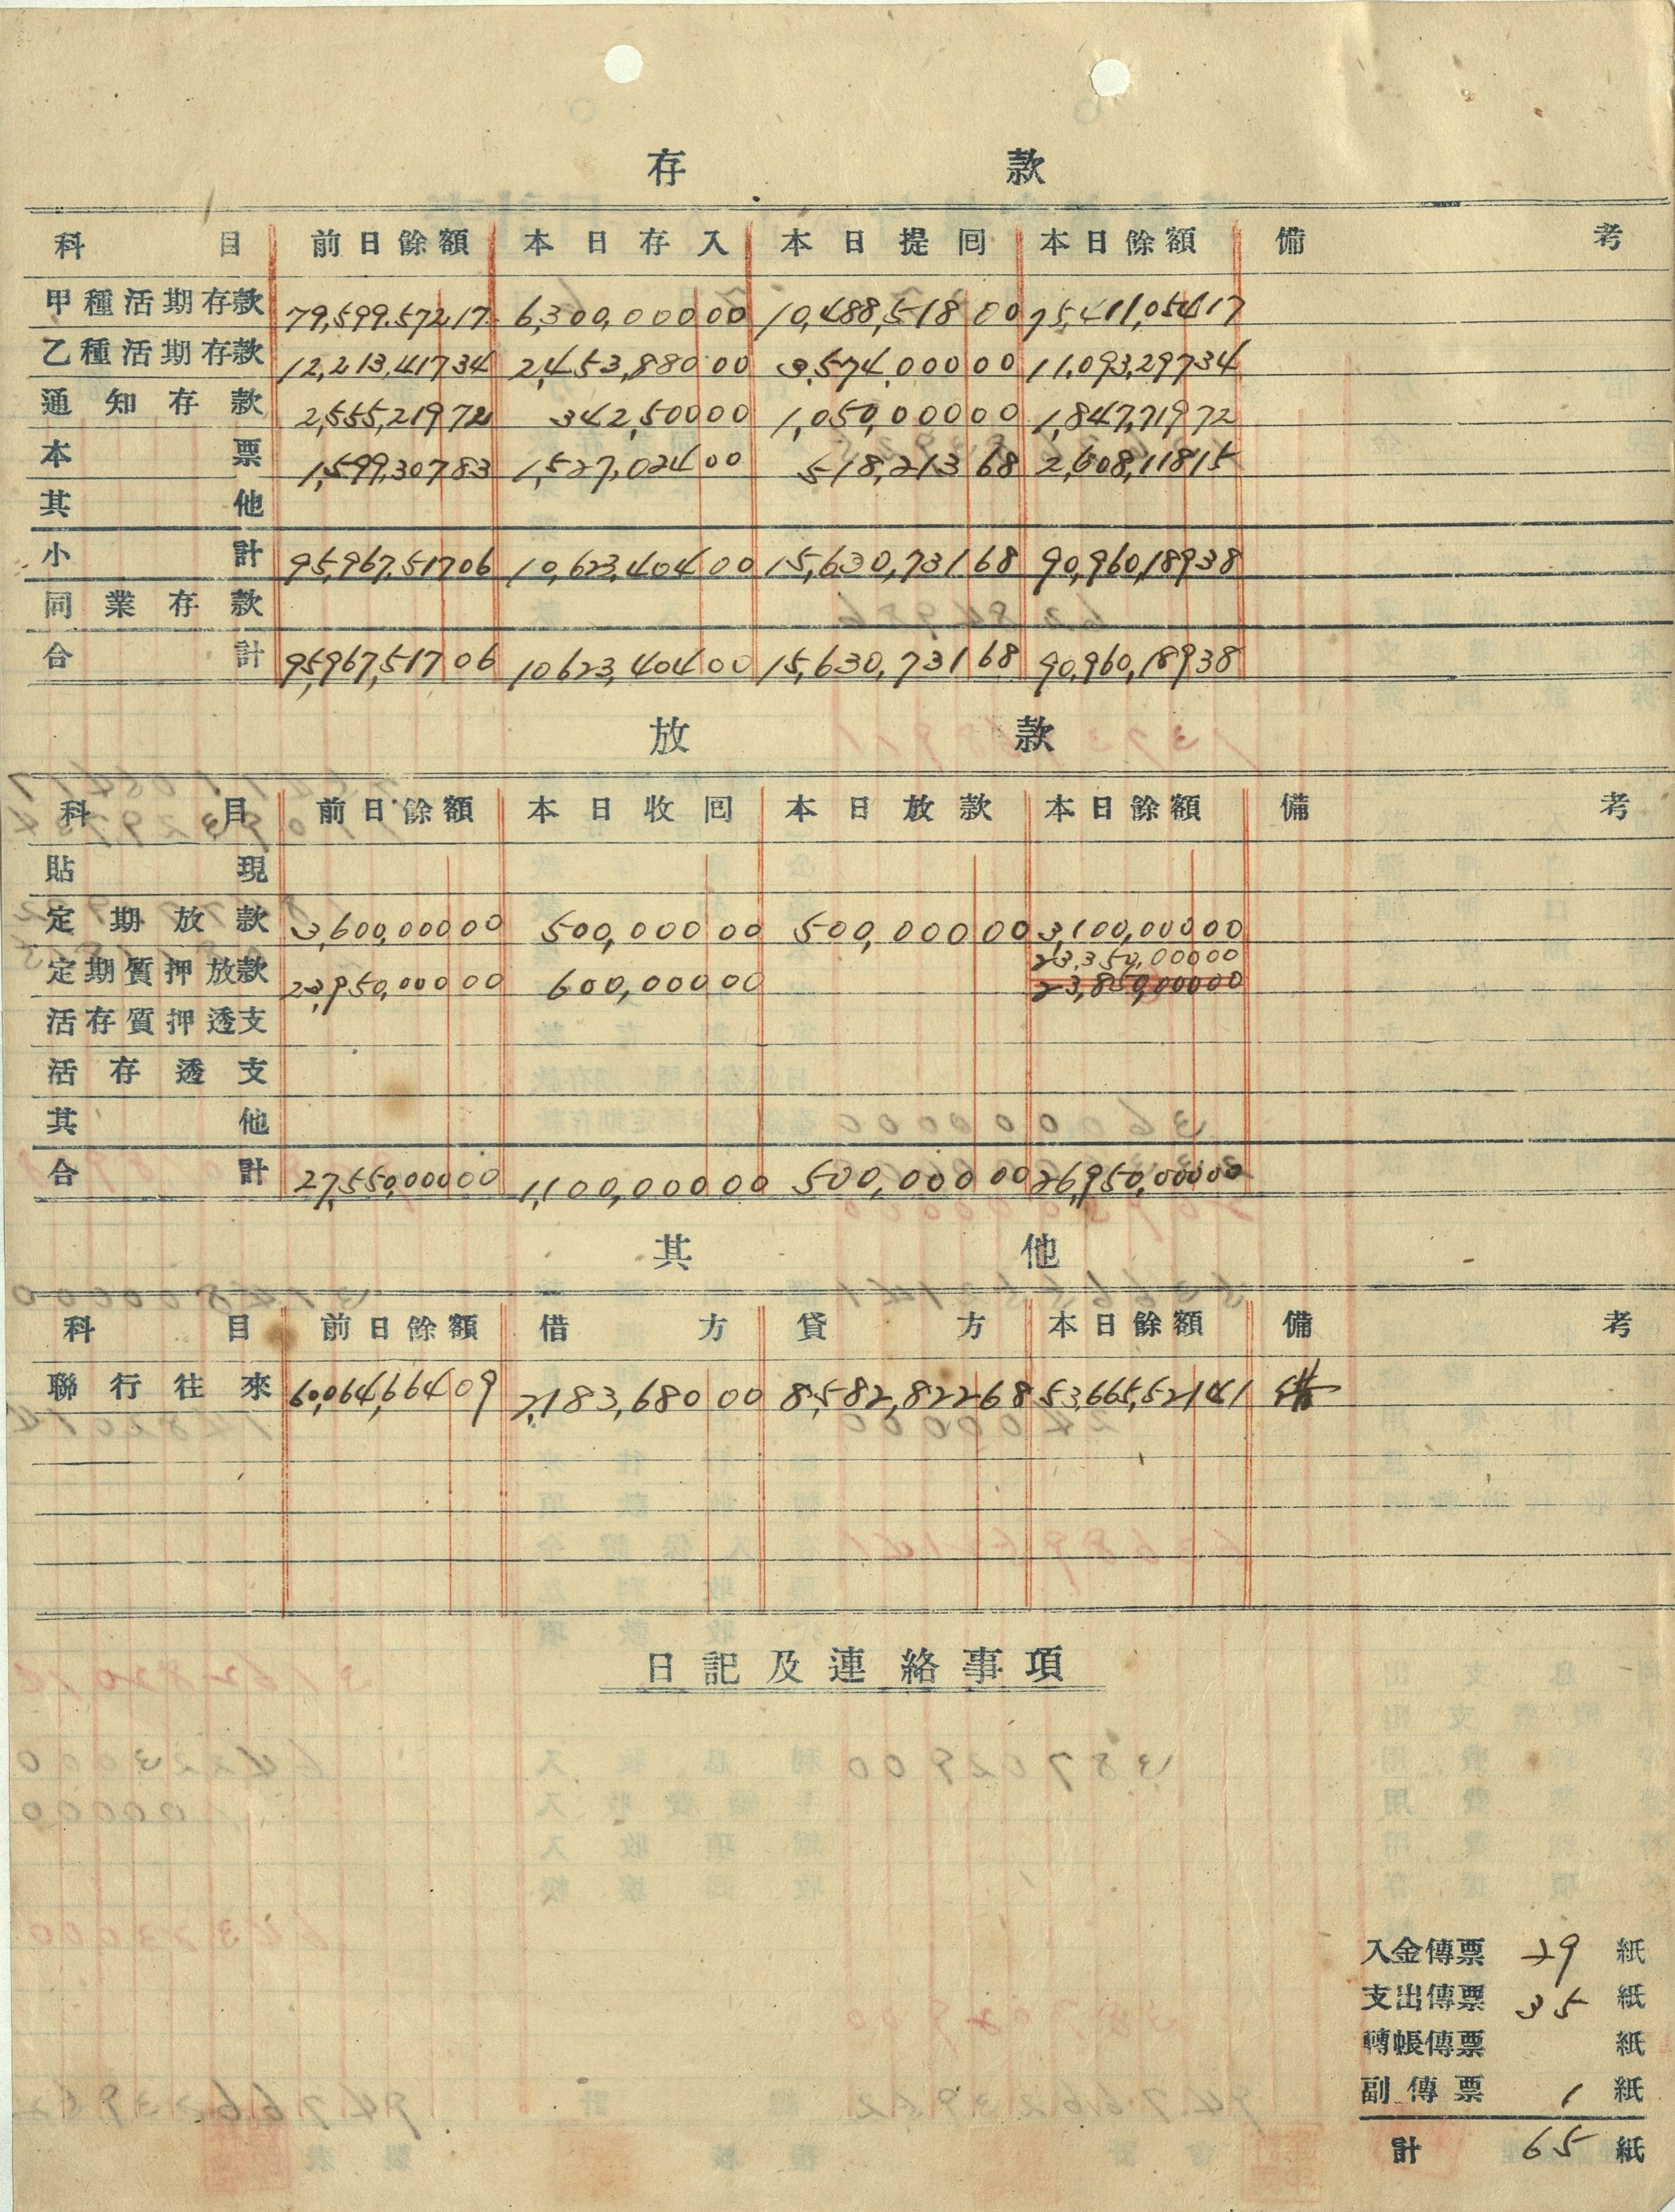 存款
科目 前日餘額 本日存入 本日提囘 本日餘額 備考
甲種活期存款 79,599,572 17 6,300,000 00 10,488,518 00 75,411,054 17
乙種活期存款 12,213,417 34 2,453,880 00 3,574,000 00 11,093,297 34
通知存款 2,555,219 72 342,500 00 1,050,000 00 1,847,719 72
本票 1,599,307 83 1,527,024 00 518,213 68 2,608,118 15
其他
小計 95,967,517 06 10,623,404 00 15,630,731 68 90,960,189 38
同業存款
合計 95,967,517 06 10623,404 00 15,630,731 68 90,960,189 38
放款
科目 前日餘額 本日收囘 本日放款 本日餘額 備考
貼現
定期放款 3,600,000 00 500,000 00 500,000 00 3,100,000 00
23,350,000 00
定期質押放款 23,950,000 00 600,000 00 23,850,000 00
活存質押透支
活存透支
其他
合計 27,550,000 00 1,100,000 00 500,000 00 26,950,000 00
其他
科目 前日餘額 借方 貸方 本日餘額 備考
聯行往來 60,064,664 09 2,183,680 00 8,582,822 68 53,665,521 41
日記及連絡事項
入金傳票 29 紙
支出傳票 35 紙
轉帳傳票 紙
副傳票 1 紙
計 65 紙